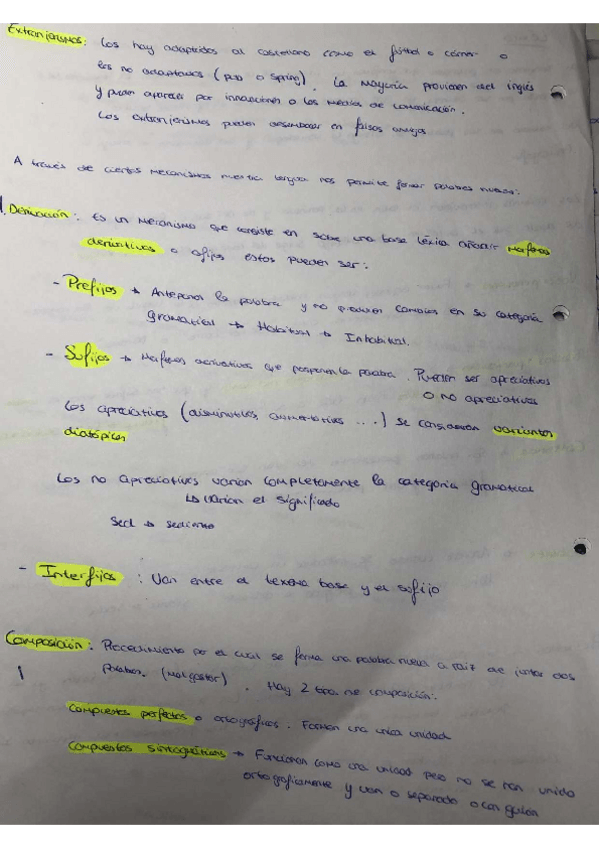 Extranjerismos: Los hay adaptados al castellano como el fútbol o córner o
los no adaptados (pub o Spring). La mayoría provienen del inglés
y pueden aparecer por innovaciones o los medios de comunicación.
Los extranjerismos pueden desembocar en falsos amigos
A través de ciertos mecanismos nuestra lengua nos permite formar palabras nuevas:
Derivación: Es un mecanismo que consiste en sobre una base léxica añadir morfemas
derivativos o afijos estos pueden ser:
- Prefijos → Anteponen la palabra y no producen cambios en su categoría
gramatical → Habitual → Inhabitual.
- Sufijos → Morfemas derivativos que posponen la palabra. Pueden ser apreciativos
o no apreciativos
Los apreciativos (diminutivos, aumentativos ...) se consideran variantes
diatópicas
Los no apreciativos varian completamente la categoría gramatical
↳ varian el significado
Sed → sediento
- Interfijos: Van entre el lexema base y el sufijo
Composición: Procedimiento por el cual se forma una palabra nueva a raíz de juntar dos
palabras. (Malgastar). Hay 2 tipos de composición:
Compuestos perfectos o ortográficos. Forman una única unidad
Compuestos sintagmáticos → Funcionan como una unidad pero no se han unido
ortograficamente y van o separado o con guión